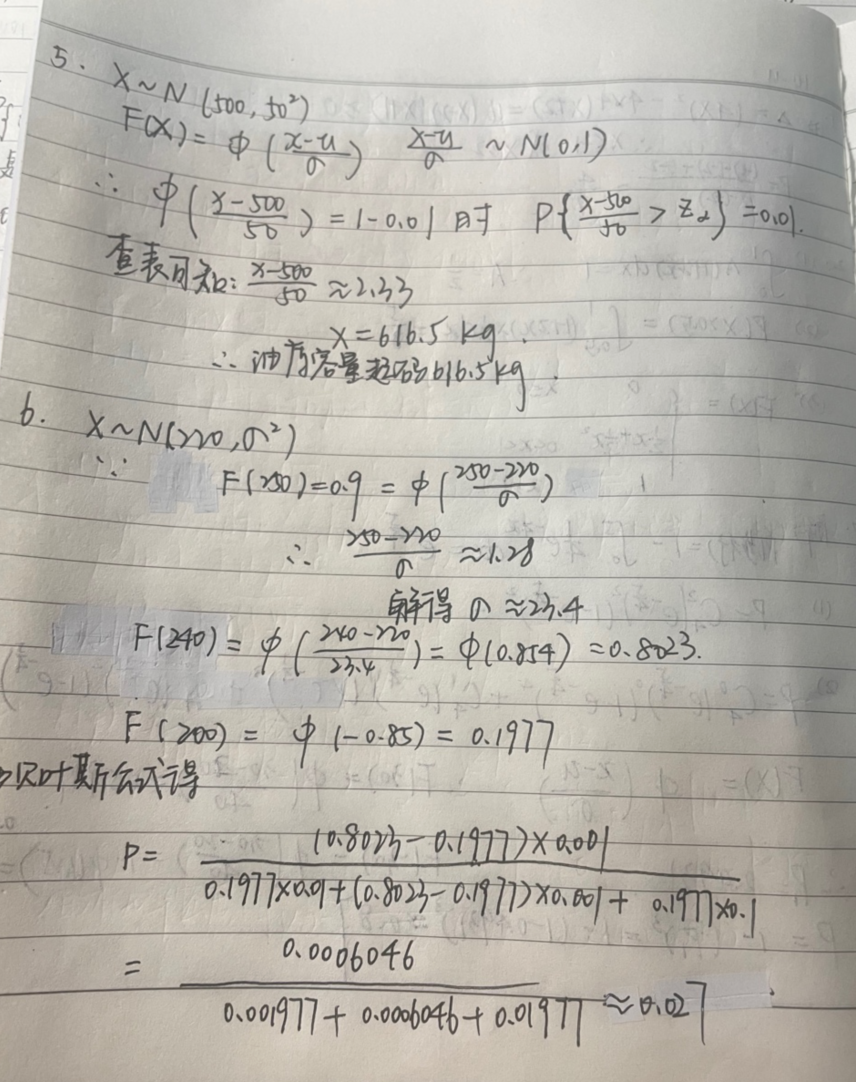 5. X~N(500,50²)
F(x)=Φ(x-u/σ) x-u/σ ~N(0,1)
∴ Φ(x-500/50)=1-0.01时 P{x-500/50 > Zα}=0.01.
查表可知: x-500/50≈2.33
x=616.5kg.
∴ 油库容量起码616.5kg.
6. X~N(220,σ²)
∵ F(250)=0.9=Φ(250-220/σ)
∴ 250-220/σ≈1.28
解得 σ≈23.4
F(240)=Φ(240-220/23.4)=Φ(0.854)=0.8023.
F(200)=Φ(-0.85)=0.1977
贝叶斯公式得
P= (0.8023-0.1977)×0.001 / 0.1977×0.01+(0.8023-0.1977)×0.001+ 0.1977×0.1
= 0.0006046 / 0.001977+0.0006046+0.01977 ≈0.027